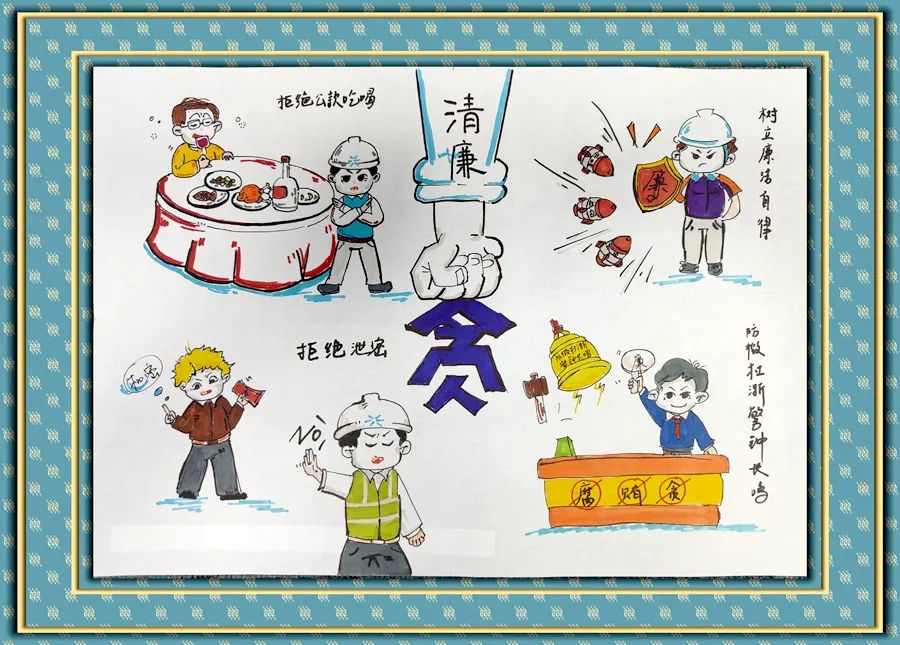 拒绝公款吃喝
清廉
贪
廉
树立廉洁自律
拒绝泄密
NO,
防微杜渐
警钟长鸣
腐 贿 贪
防微杜渐警钟长鸣